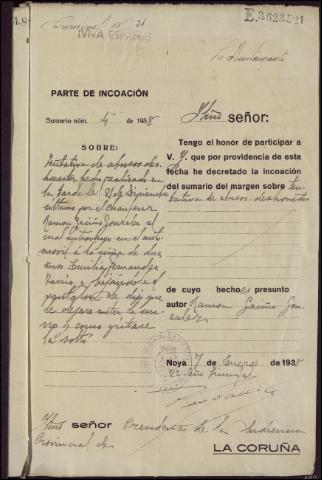 E.3623.521
¡VIVA ESPAÑA!
PARTE DE INCOACIÓN
Sumario núm. 4 de 1938
SOBRE:
Tentativa de abusos des-
honestos hecho realizado en
la tarde de 21 de Diciembre
último por el chauffeur
Ramon Gaiño González el
cual introdujo en el auto-
movil á la niña de diez
años Emilia Fernandez
y bajándole el
le dijo que
se dejase meter la
y como gritase
la soltó
Ilmo señor:
Tengo el honor de participar a
V. I. que por providencia de esta
fecha he decretado la incoación
del sumario del margen sobre ten-
tativa de abusos deshonestos
de cuyo hecho es presunto
autor Ramon Gaiño Gon-
zalez
Noya 7 de Enero de 1938
Ilmo señor Presidente de la Audiencia
Provincial de
LA CORUÑA